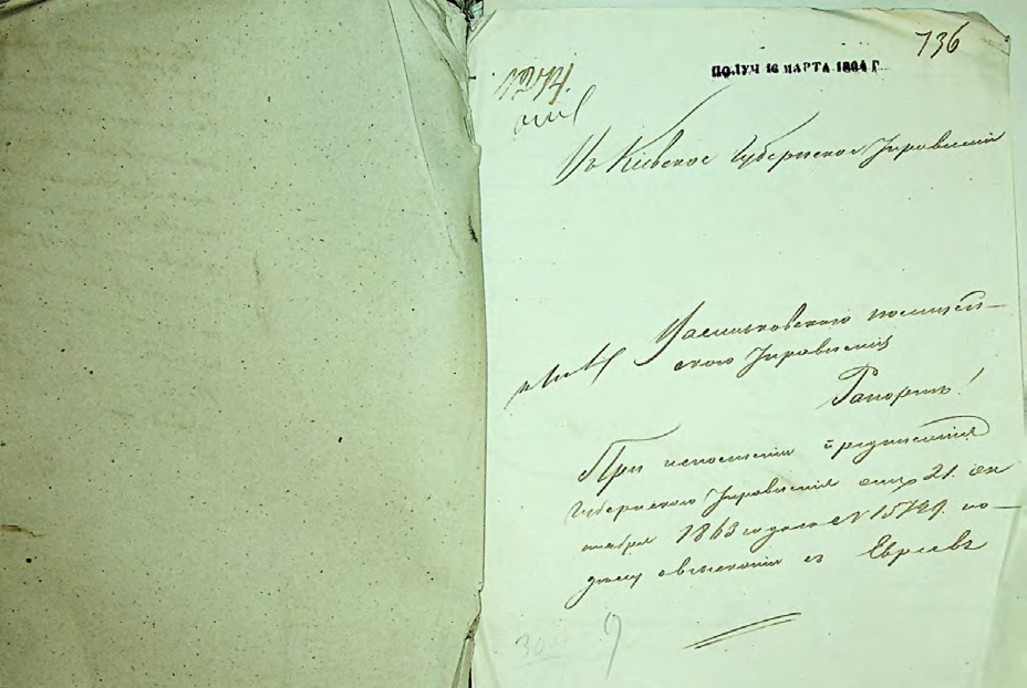 736
ПОЛУЧ 16 МАРТА 1864 Г.
1274.
Въ Кіевское Губернское Правленіе
Васильковскаго полицей-
скаго Управленія
Рапортъ!
При исполненіи предписанія
Губернскаго Правленія отъ 21. ок
тября 1863 года за № 15749. по
дѣлу о взысканіи съ Евреевъ